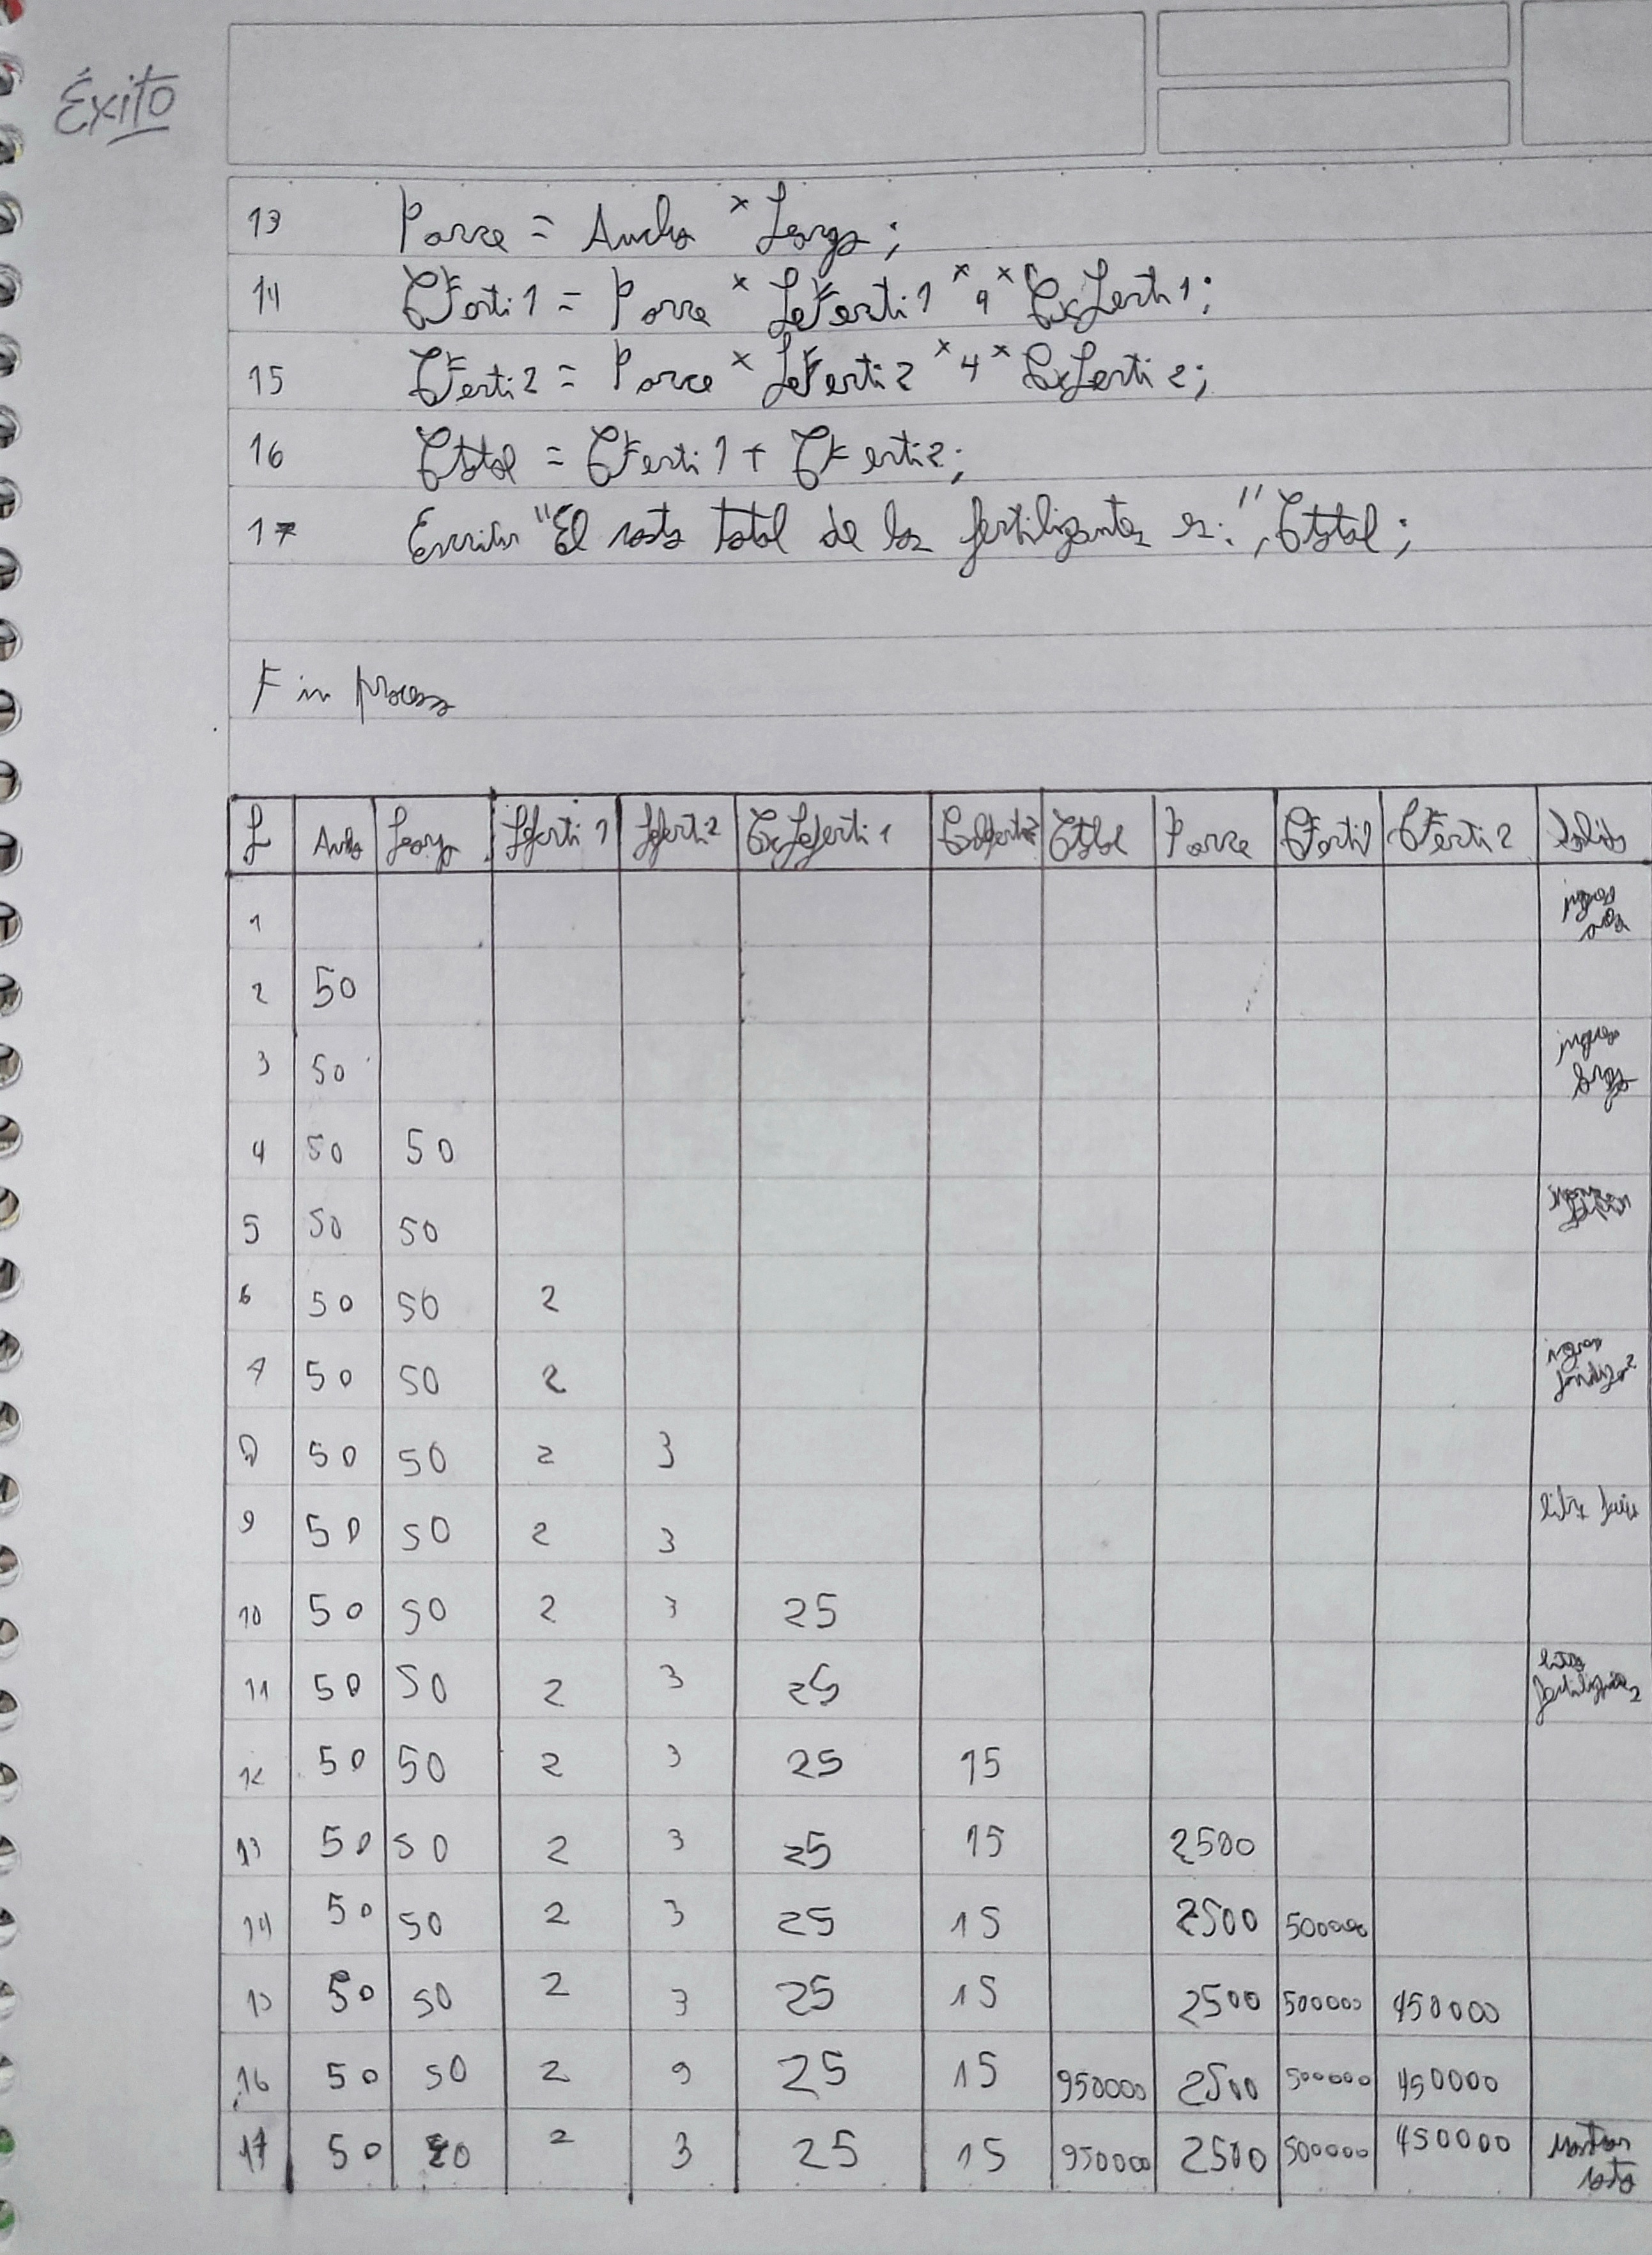 Éxito
13 Parce = Ancho * Largo;
14 CFerti1 = Parce * LeFerti1 * 4 * CxLerti1;
15 CFerti2 = Parce * LeFerti2 * 4 * CxLerti2;
16 Ctotal = CFerti1 + CFerti2;
17 Escribir "El costo total de los fertilizantes es:", Ctotal;
Fin proceso
L Ancho Largo Lferti1 Lferti2 CxLeferti1 Ctotal Parce CFerti1 CFerti2 Salida
1 ingrese
2 50
3 50 ingrese largo
4 50 50
5 50 50
6 50 50 2
7 50 50 2 ingrese fertilizante 2
8 50 50 2 3
9 50 50 2 3 litro
10 50 50 2 3 25
11 50 50 2 3 25 fertilizante 2
12 50 50 2 3 25 15
13 50 50 2 3 25 15 2500
14 50 50 2 3 25 15 2500 500000
15 50 50 2 3 25 15 2500 500000 450000
16 50 50 2 3 25 15 950000 2500 500000 450000
17 50 50 2 3 25 15 950000 2500 500000 450000 Mostrar costo